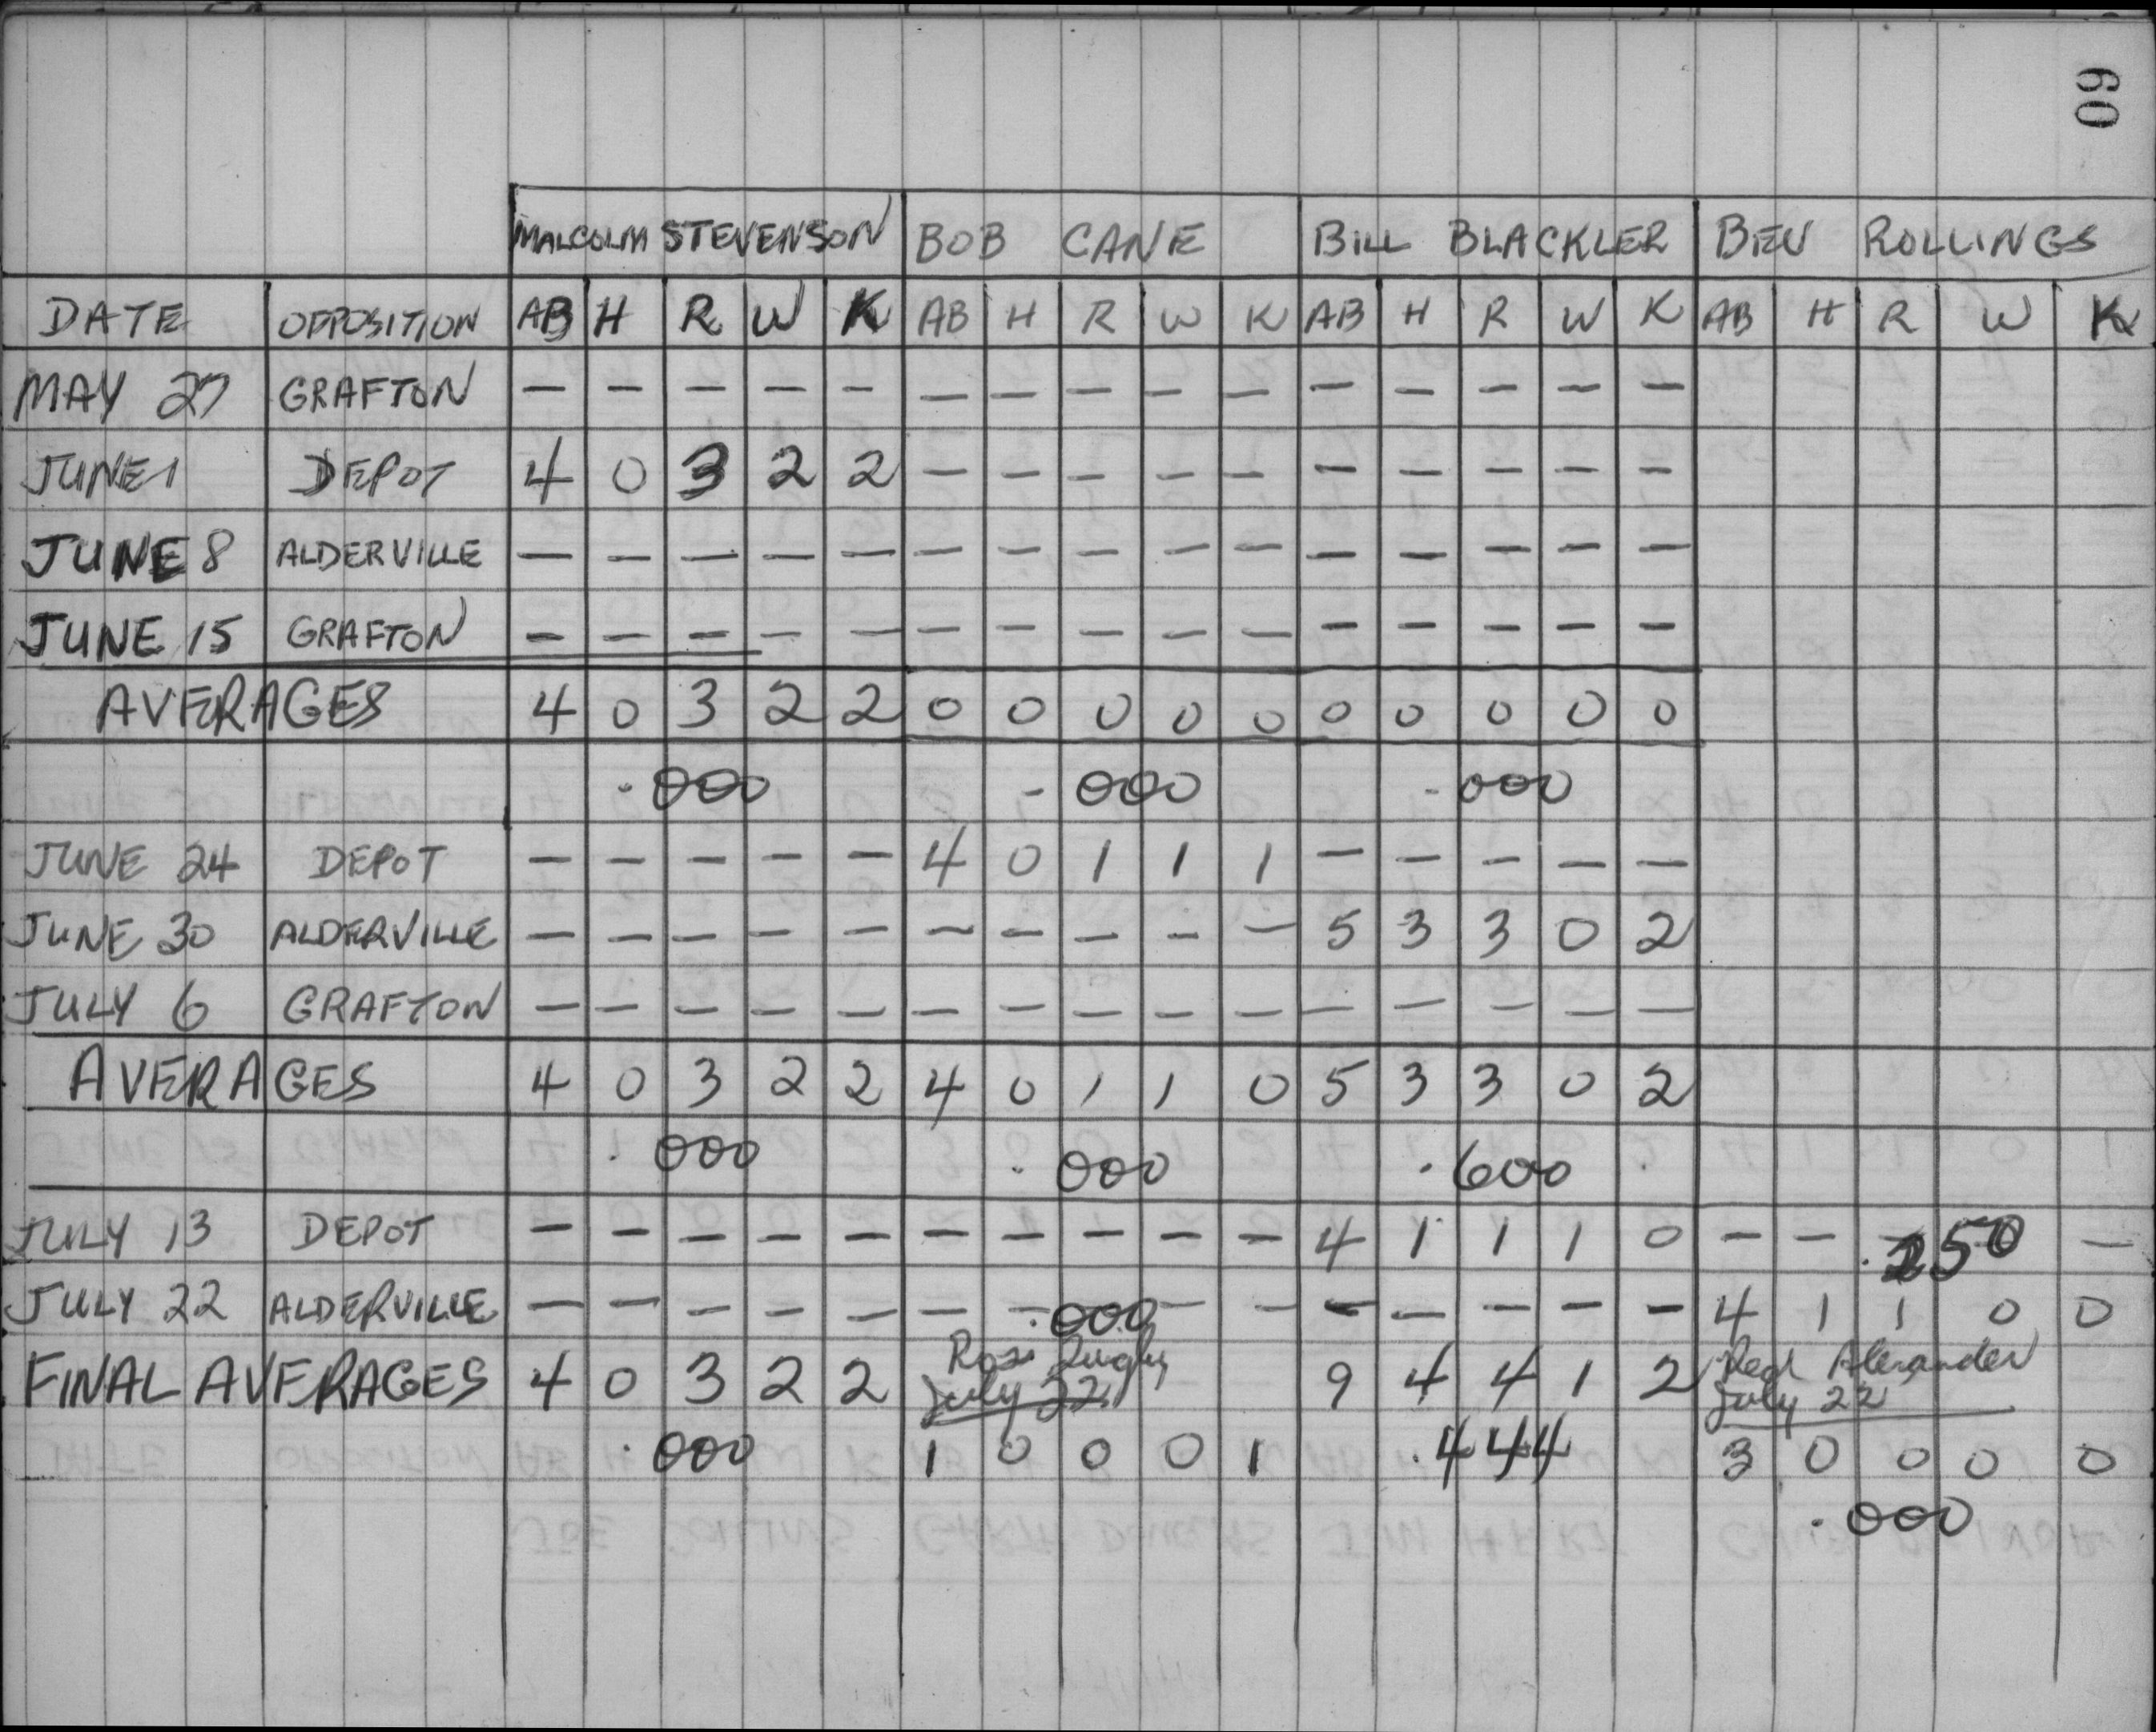 60
MALCOLM STEVENSON BOB CANE BILL BLACKLER BEV ROLLINGS
DATE OPPOSITION AB H R W K AB H R W K AB H R W K AB H R W K
MAY 27 GRAFTON — — — — — — — — — — — — — — —
JUNE 1 DEPOT 4 0 3 2 2 — — — — — — — — — —
JUNE 8 ALDERVILLE — — — — — — — — — — — — — — —
JUNE 15 GRAFTON — — — — — — — — — — — — — — —
AVERAGES 4 0 3 2 2 0 0 0 0 0 0 0 0 0 0
.000 .000 .000
JUNE 24 DEPOT — — — — — 4 0 1 1 1 — — — — —
JUNE 30 ALDERVILLE — — — — — — — — — — 5 3 3 0 2
JULY 6 GRAFTON — — — — — — — — — — — — — — —
AVERAGES 4 0 3 2 2 4 0 1 1 0 5 3 3 0 2
.000 .000 .600
JULY 13 DEPOT — — — — — — — — — — 4 1 1 1 0 — — .250 —
JULY 22 ALDERVILLE — — — — — — — .000 — — — — — — — 4 1 1 0 0
FINAL AVERAGES 4 0 3 2 2 Ross July 22 9 4 4 1 2 Alexander July 22
.000 1 0 0 0 1 .444 3 0 0 0 0
.000